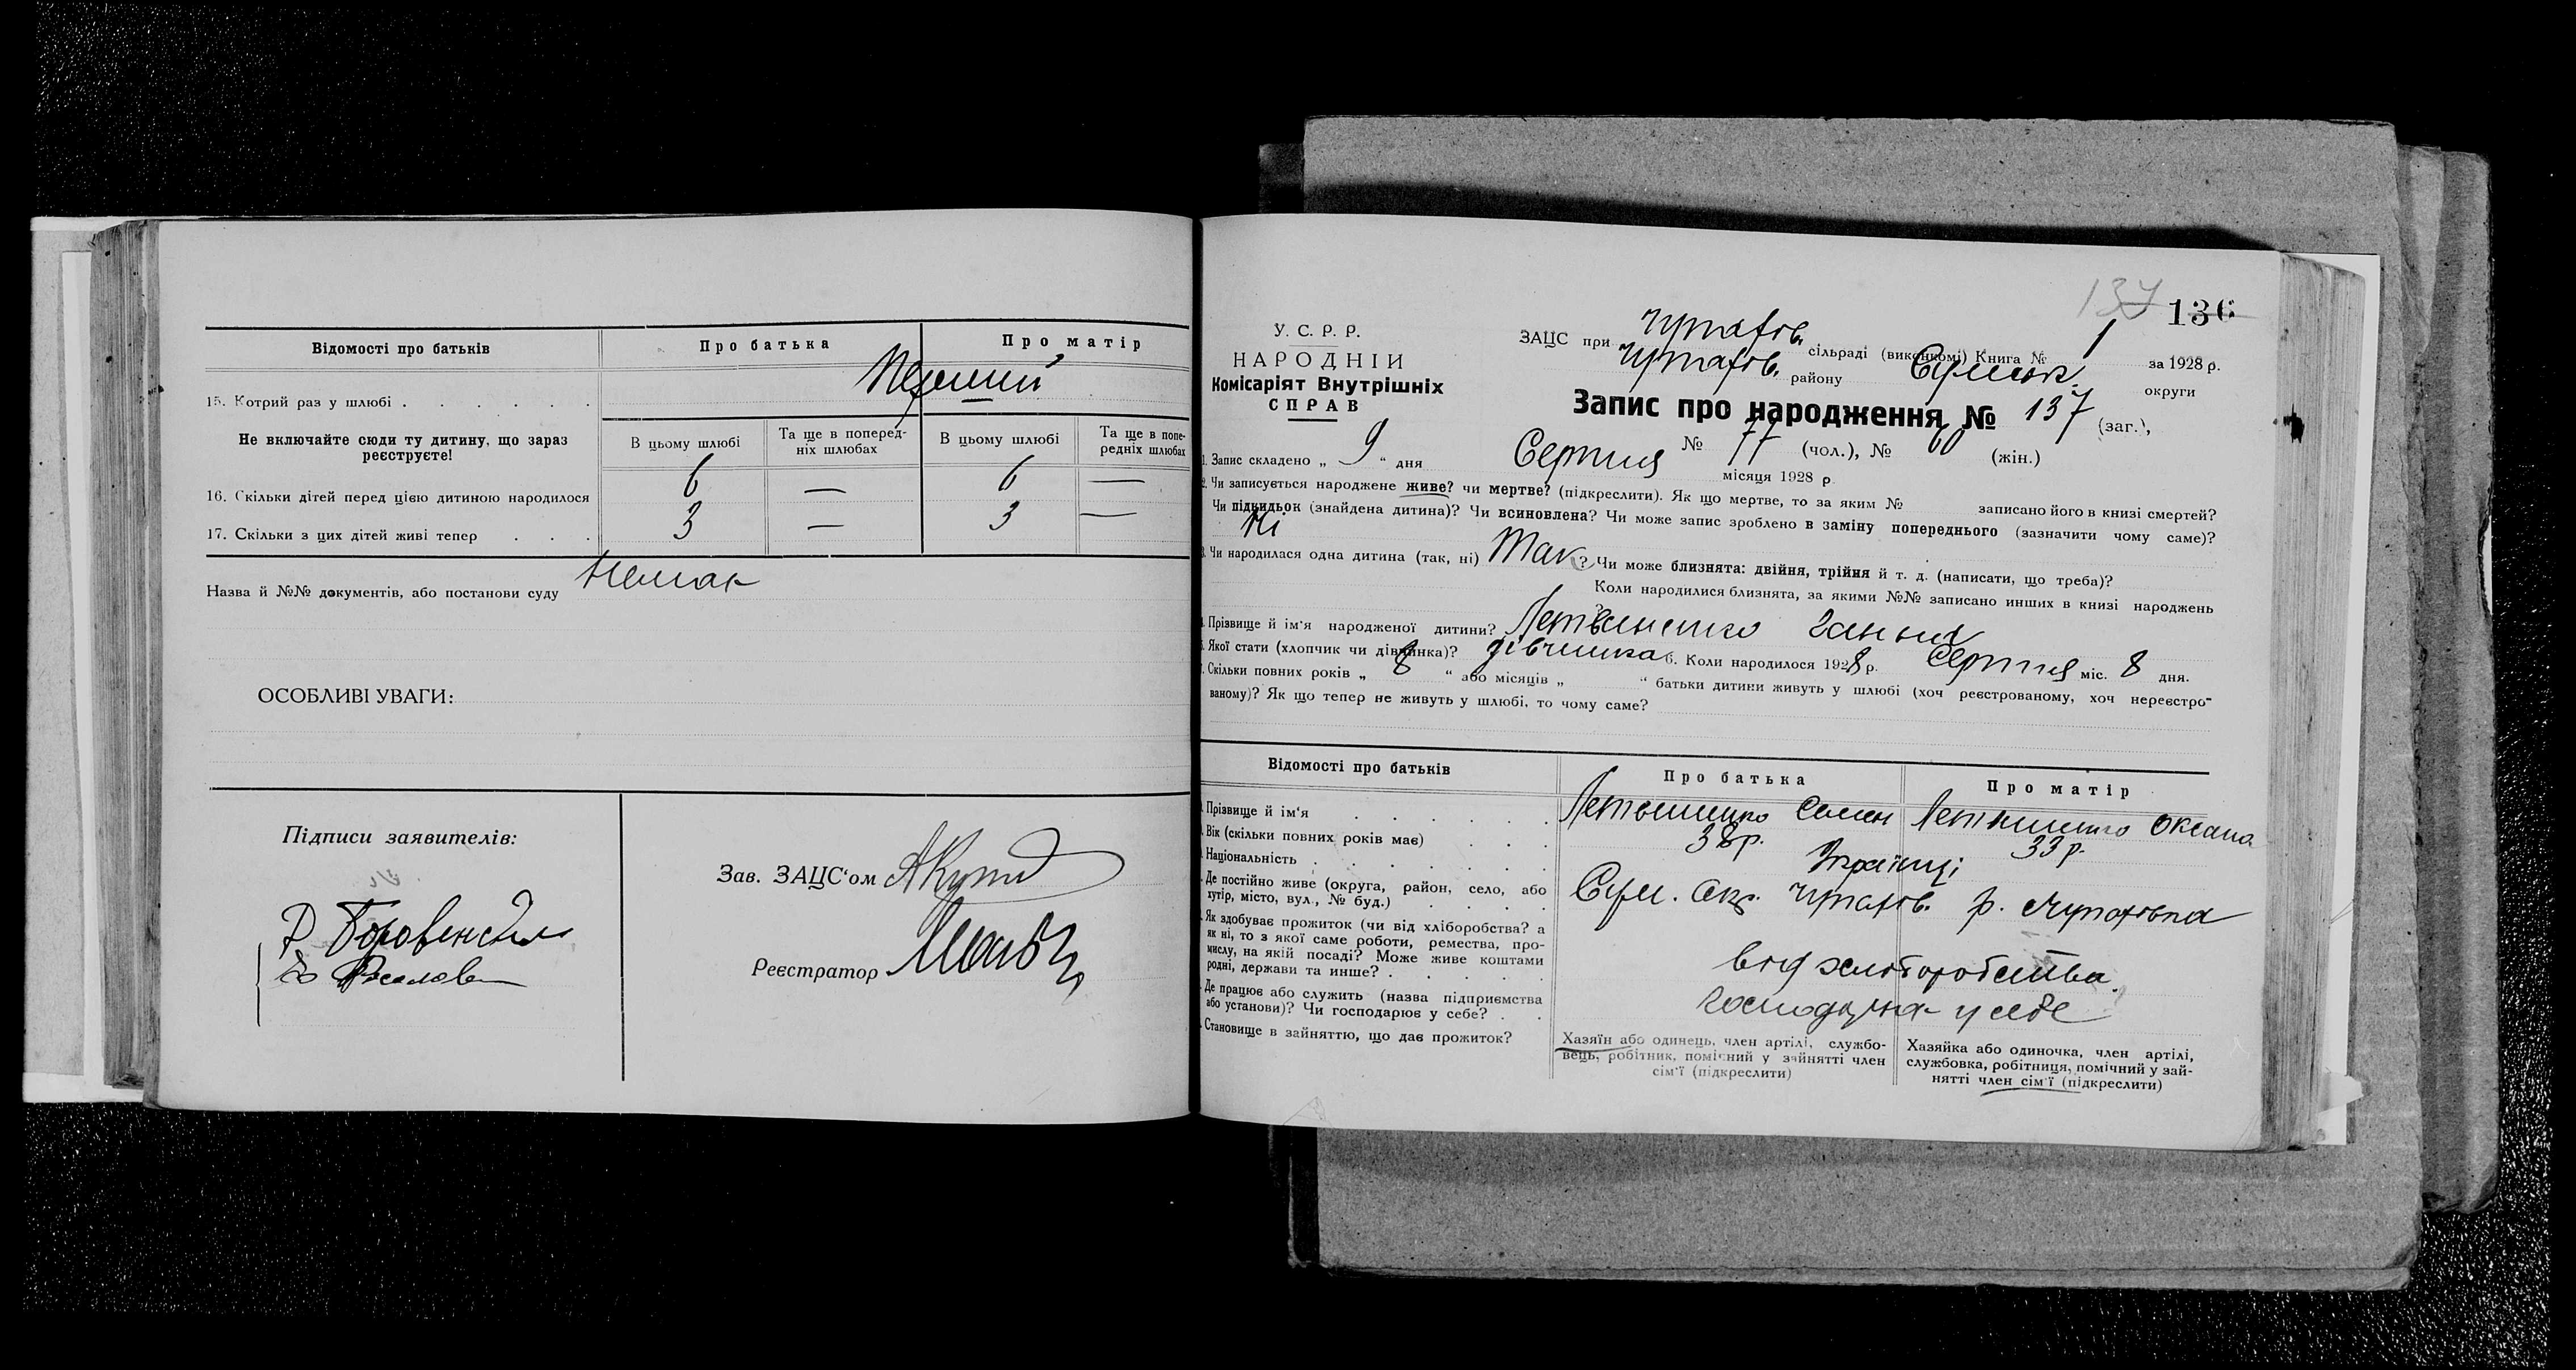 Відомості про батьків
Про батька
Про матір
15. Котрий раз у шлюбі
Перший
Не включайте сюди ту дитину, що зараз
реєструєте!
В цьому шлюбі
Та ще в поперед-
ніх шлюбах
В цьому шлюбі
Та ще в попе-
редніх шлюбах
16. Скільки дітей перед цією дитиною народилося
6 — 6 —
17. Скільки з цих дітей живі тепер
3 — 3 —
Назва й №№ документів, або постанови суду
Немає
ОСОБЛИВІ УВАГИ:
Підписи заявителів:
Зав. ЗАЦС'ом
Реєстратор
137 136
У. С. Р. Р.
НАРОДНІЙ
Комісаріят Внутрішніх
СПРАВ
ЗАЦС при сільраді (виконкомі) Книга № 1 за 1928 р.
району Сумськ. округи
Запис про народження № 137 (заг.),
№ 77 (чол.), № 60 (жін.)
1. Запис складено „ 9 “ дня Серпня місяця 1928 р
2. Чи записується народжене живе? чи мертве? (підкреслити). Як що мертве, то за яким № записано його в книзі смертей?
Чи підкидьок (знайдена дитина)? Чи всиновлена? Чи може запис зроблено в заміну попереднього (зазначити чому саме)?
Ні
3. Чи народилася одна дитина (так, ні) Так ? Чи може близнята: двійня, трійня й т. д. (написати, що треба)?
Коли народилися близнята, за якими №№ записано инших в книзі народжень
Прізвище й ім'я народженої дитини? Ганна
Якої стати (хлопчик чи дівчинка)? дівчинка 6. Коли народилося 1928 р. Серпня міс. 8 дня.
Скільки повних років „ 8 “ або місяців „ “ батьки дитини живуть у шлюбі (хоч реєстрованому, хоч нереєстро-
ваному)? Як що тепер не живуть у шлюбі, то чому саме?
Відомості про батьків
Про батька
Про матір
Прізвище й ім'я
Семен
Оксана
Вік (скільки повних років має)
38 р.
33 р.
Національність
Українці
Де постійно живе (округа, район, село, або
хутір, місто, вул., № буд.)
Сум. окр. р.
Як здобуває прожиток (чи від хліборобства? а
як ні, то з якої саме роботи, ремества, про-
мислу, на якій посаді? Може живе коштами
родні, держави та инше?
від хліборобства.
Де працює або служить (назва підприємства
або установи)? Чи господарює у себе?
у себе
Становище в зайняттю, що дає прожиток?
Хазяїн або одинець, член артілі, службо-
вець, робітник, помічний у зайнятті член
сім'ї (підкреслити)
Хазяйка або одиночка, член артілі,
службовка, робітниця, помічний у зай-
нятті член сім'ї (підкреслити)